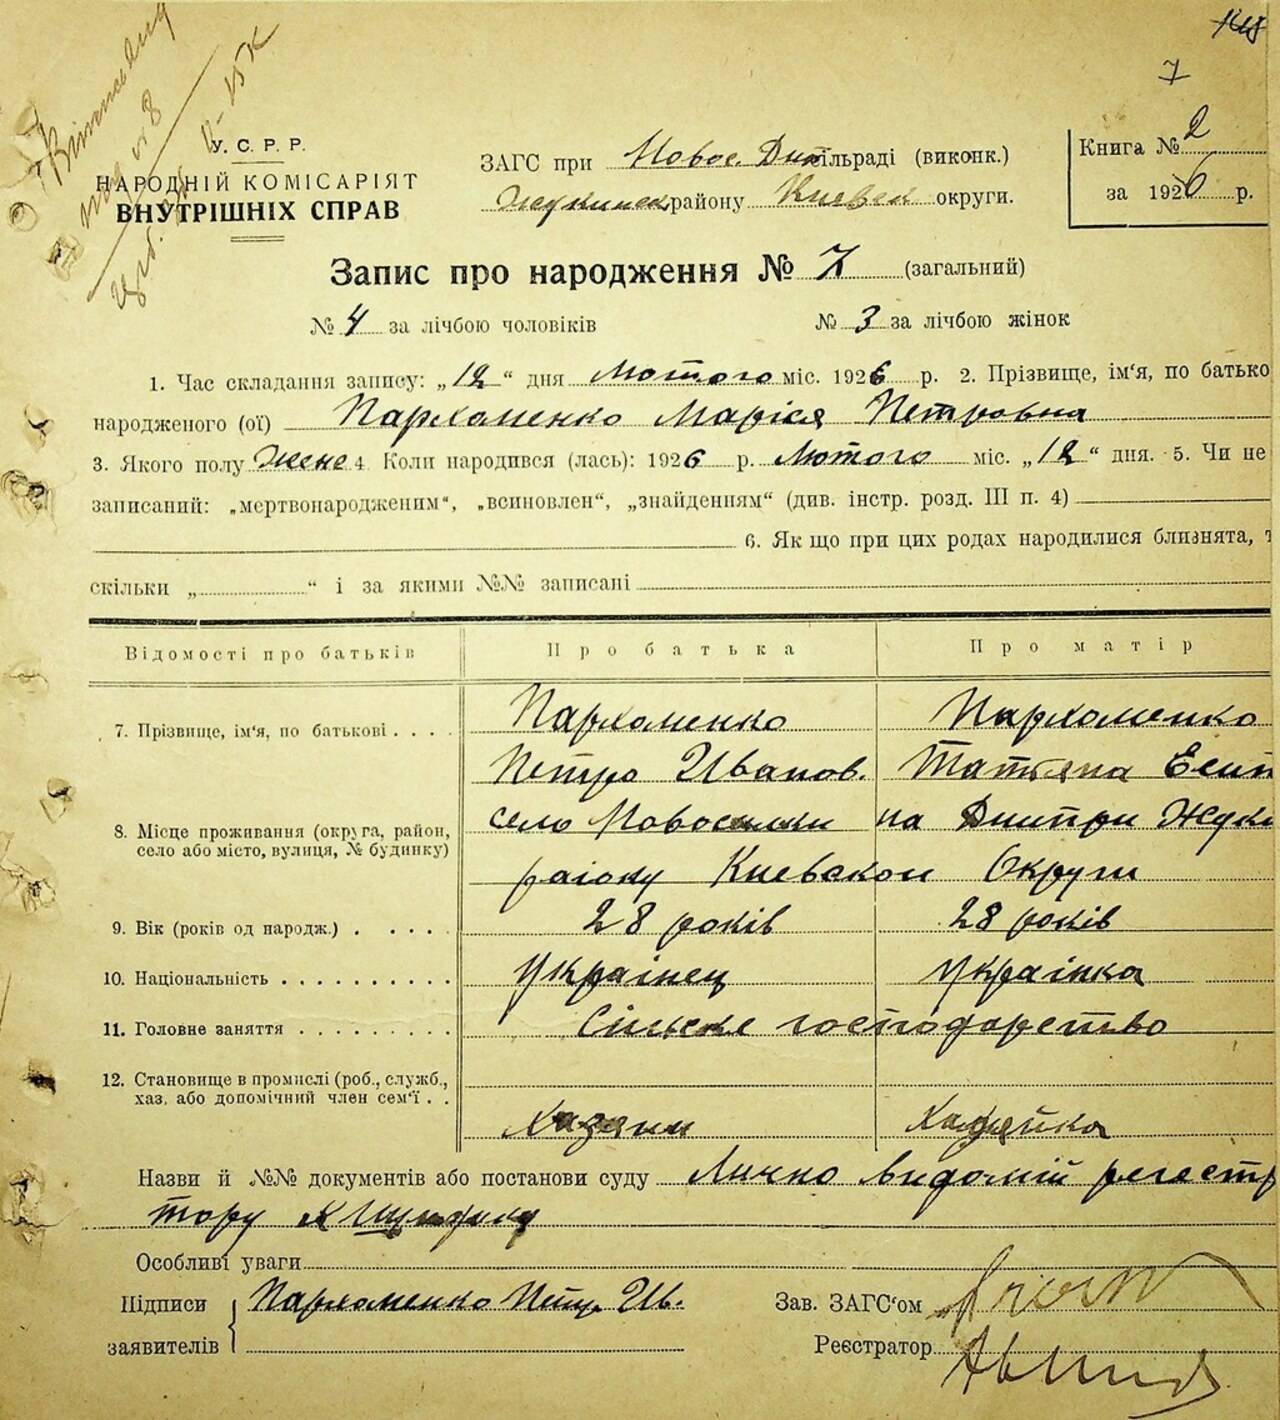 118
7
Вітшдану
№ 8
У. С. Р. Р.
НАРОДНІЙ КОМІСАРІЯТ
ВНУТРІШНІХ СПРАВ
ЗАГС при Новос. Дніп сільраді (виконк.)
Жукинск району Киевск округи.
Книга № 2
за 1926 р.
Запис про народження № 7 (загальний)
№ 4 за лічбою чоловіків № 3 за лічбою жінок
1. Час складання запису: „12“ дня Лютого міс. 1926 р. 2. Прізвище, ім‘я, по батько
народженого (ої) Пархоменко Марія Петровна
3. Якого полу Жене 4 Коли народився (лась): 1926 р. Лютого міс. „12“ дня. 5. Чи не
записаний: „мертвонародженим“, „всиновлен“, „знайденням“ (див. інстр. розд. III п. 4)
6. Як що при цих родах народилися близнята, т
скільки „ “ і за якими №№ записані
Відомості про батьків Про батька Про матір
7. Прізвище, ім‘я, по батькові . . . . Пархоменко Пархоменко
Петро Иванов. Татяна Есип
8. Місце проживання (округа, район, село або місто, вулиця, № будинку) село Новосилки на Дніпри Жуки
району Киевской Округи
9. Вік (років од народж.) . . . . . 28 років 28 років
10. Національність . . . . . . . . . . Українец Українка
11. Головне заняття . . . . . . . . . Сільске господарство
12. Становище в промислі (роб., служб.,
хаз. або допомічний член сем‘ї . . Хазяин Хазяйка
Назви й №№ документів або постанови суду Лично видомій регестр
тору
Особливі уваги
Підписи Пархоменко Петр Ив. Зав. ЗАГС‘ом
заявителів Реєстратор